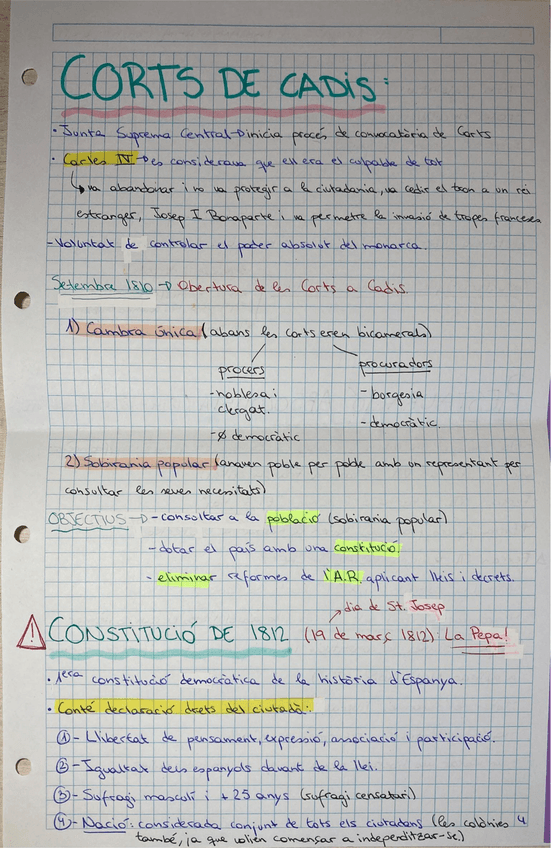 CORTS DE CADIS:
· Junta Suprema Central → inicia procés de convocatòria de Corts
· Carles IV → es considerava que ell era el culpable de tot
↳ va abandonar i no va protegir a la ciutadania, va cedir el tron a un rei
estranger, Josep I Bonaparte i va permetre la invasió de tropes franceses
- Voluntat de controlar el poder absolut del monarca.
Setembre 1810 → Obertura de les Corts a Cadis.
1) Cambra única (abans les corts eren bicamerals)
procers procuradors
- noblesa i - borgesia
clergat. - democràtic.
- Ø democràtic
2) Sobirania popular (anaven poble per poble amb un representant per
consultar les seves necesitats)
OBJECTIUS → - consultar a la població (sobirania popular)
- dotar el país amb una constitució
- eliminar reformes de l'A.R. aplicant lleis i decrets.
→ dia de St. Josep
⚠ CONSTITUCIÓ DE 1812 (19 de març 1812) La Pepa!
· 1era constitució democràtica de la història d'Espanya.
· Conté declaració drets del ciutadà:
① - Llibertat de pensament, expressió, associació i participació.
② - Igualtat dels espanyols davant de la llei.
③ - Sufragi masculí i +25 anys (sufragi censatari)
④ - Nació: considerada conjunt de tots els ciutadans (les colònies
també, ja que volien començar a independitzar-se.)